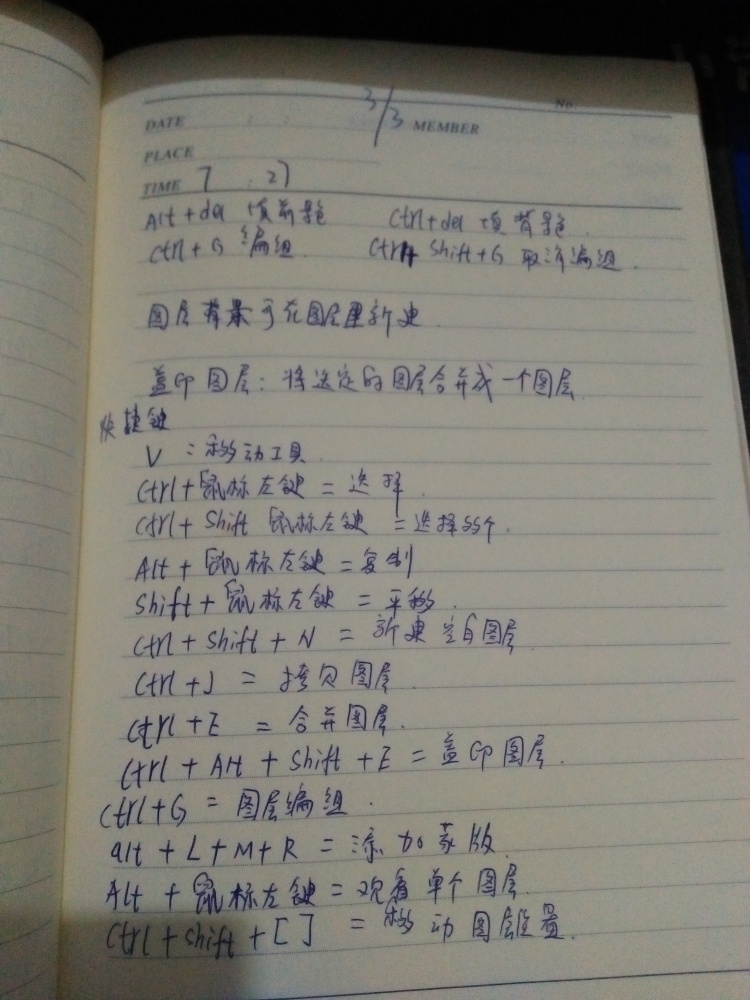 3/3 No.
DATE : : MEMBER
PLACE
TIME 7 : 27
Alt+del 填前景色 Ctrl+del 填背景色.
Ctrl+G 编组. Ctrl+ Shift+G 取消编组.
图层背景可在图层里新建.
盖印图层: 将选定的图层合并成一个图层.
快捷键
V = 移动工具.
Ctrl+鼠标左键 = 选择.
Ctrl+ Shift 鼠标左键 = 选择多个.
Alt + 鼠标左键 = 复制
Shift + 鼠标左键 = 平移.
Ctrl + Shift + N = 新建空白图层
Ctrl+J = 拷贝图层.
Ctrl +E = 合并图层.
Ctrl + Alt + Shift + E = 盖印图层.
Ctrl+G = 图层编组.
alt + L + M + R = 添加蒙版.
Alt + 鼠标左键 = 观看单个图层.
Ctrl + shift + [ ] = 移动图层位置.